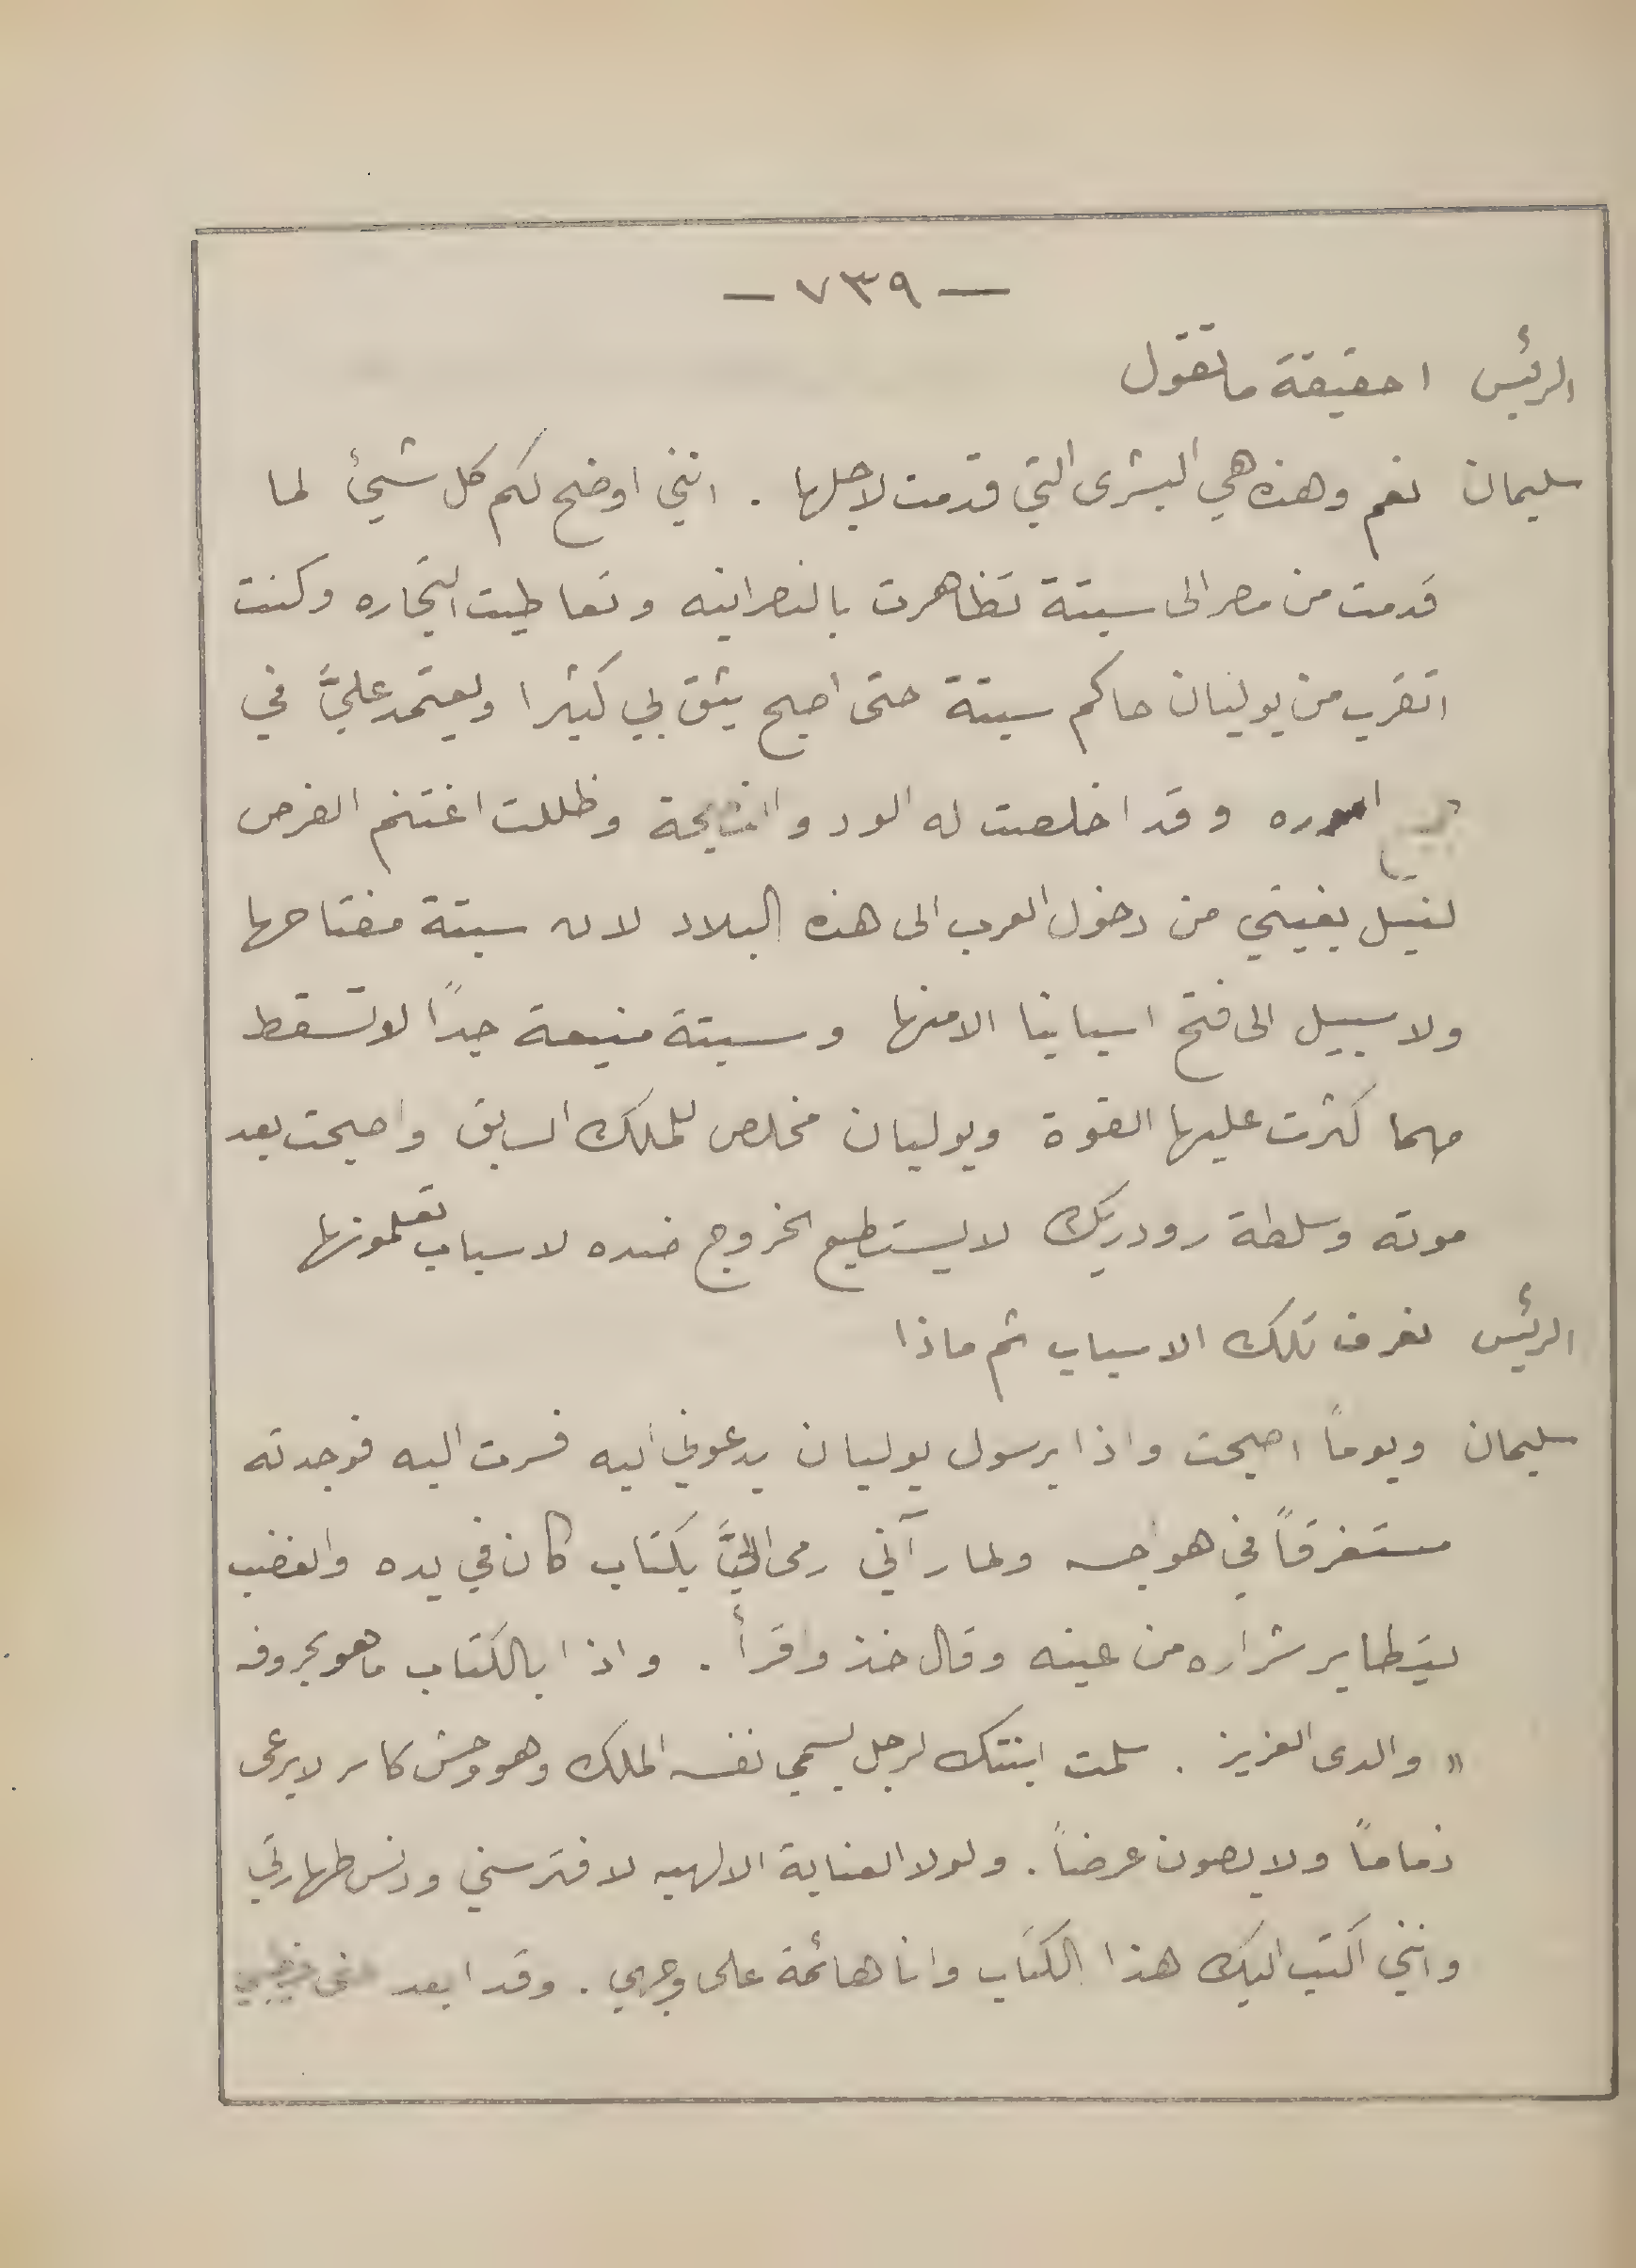 — ٧٣٩ —
الرئيس احقيقة ما تقول
سليمان نعم وهذه هي البشرى التي قدمت لاجلها . انني اوضح لكم كل شيئ لما
قدمت من مصر الى سبتة تظاهرت بالنصرانيه وتعاطيت التجاره وكنت
اتقرب من يوليان حاكم سبتة حتى اصبح يثق بي كثيرا ويعتمد عليَّ في
اموره وقد اخلصت له الود والنصيحة وظللت اغتنم الفرص
لنيل بغيتي من دخول العرب الى هذه البلاد لان سبتة مفتاحها
ولا سبيل الى فتح اسبانيا الا منها وسبتة منيعة جداً لا تسقط
مهما كثرت عليها القوة ويوليان مخلص للملك السابق واصبحت بعد
موته وسلطة رودريك لا يستطيع الخروج ضده لاسباب تعلمونها
الرئيس نعرف تلك الاسباب ثم ماذا
سليمان ويوماً اصبحت واذا برسول يوليان يدعوني اليه فسرت اليه فوجدته
مستغرقاً في هواجسه ولما رآني رمى اليَّ بكتاب كان في يده والغضب
يتطاير شراره من عينه وقال خذ واقرأ . واذا بالكتاب ما هو بحروفه
« والدى العزيز . سلمت ابنتك لرجل يسمي نفسه الملك وهو وحش كاسر لا يرعى
ذماماً ولا يصون عرضاً . ولولا العناية الالهيه لافترسني ودنس طهارتي
وانني اكتب اليك هذا الكتاب وانا هائمة على وجهي . وقد ابعد عني